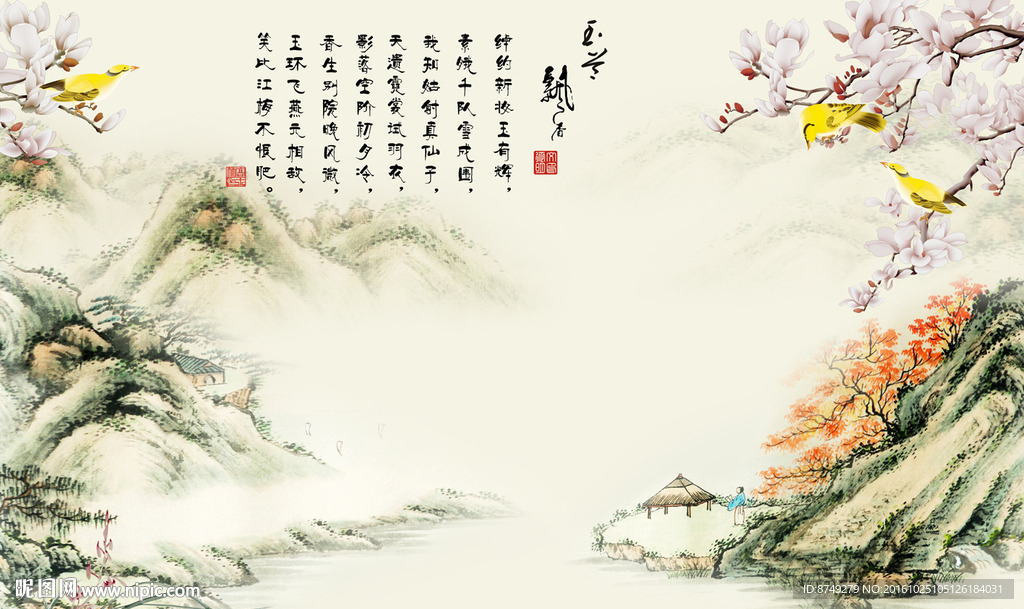 玉兰
飘香
绰约新妆玉有辉，
素娥千队雪成围，
我知姑射真仙子，
天遗霓裳试羽衣，
影落空阶初夕冷，
香生别院晚风微，
玉环飞燕元相敌，
笑比江梅不恨肥。
昵图网 www.nipic.com
ID:8749279 NO:20161025105126184031